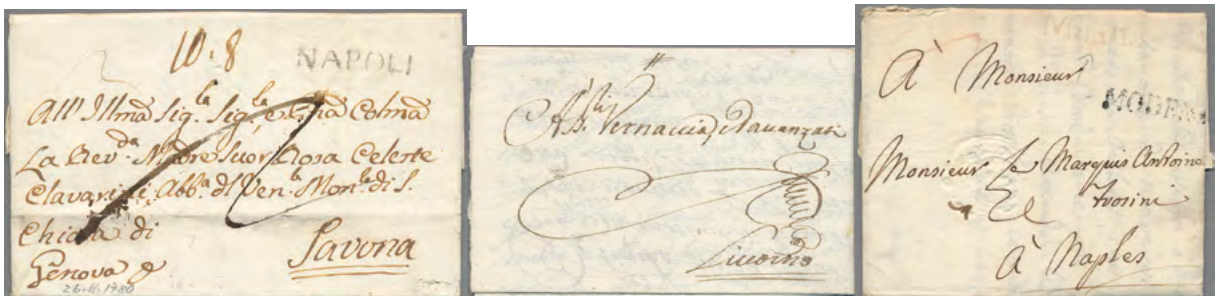 10:8
NAPOLI
All' Illma Sig.la Sig.la e Pna Colma
La Rev.da Madre Suor Rosa Celeste
Clavarini Abb.a di Ven.le Mon.le di S.
Chiara di
Genova
Savona
26-11-1780
Vernaccia, e Davanzati
Livorno
À Monsieur
MODENA
Monsieur Le Marquis Antoine
À Naples